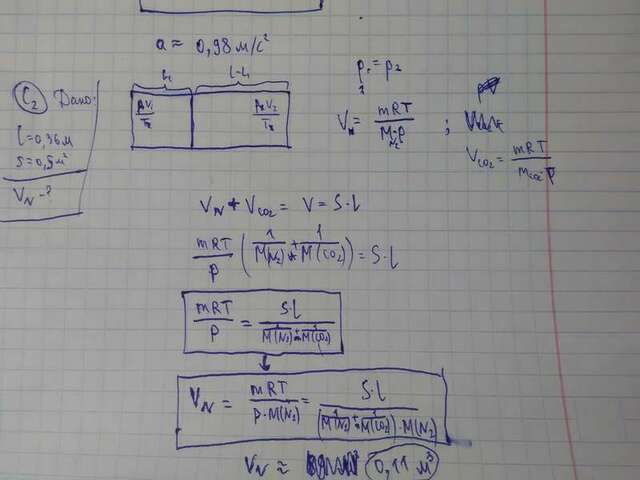 a ≈ 0,98 м/с²
C₂ Дано:
l = 0,36 м
S = 0,5 м²
V_N - ?
l₁
l-l₁
p₁V₁/T₁
p₂V₂/T₂
p₁ = p₂
V_N = mRT/(M_N₂·p) ;
V_CO₂ = mRT/(M_CO₂·p)
V_N + V_CO₂ = V = S·l
mRT/p (1/M(N₂) + 1/M(CO₂)) = S·l
mRT/p = S·l/(1/M(N₂) + 1/M(CO₂))
V_N = mRT/(p·M(N₂)) = S·l/((1/M(N₂) + 1/M(CO₂))·M(N₂))
V_N ≈ 0,11 м³